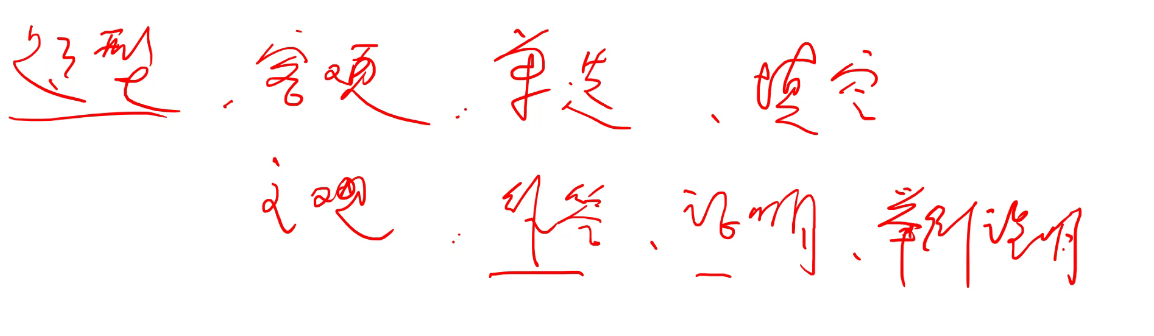 题型、客观:单选、填空
主观:解答、证明、举例说明